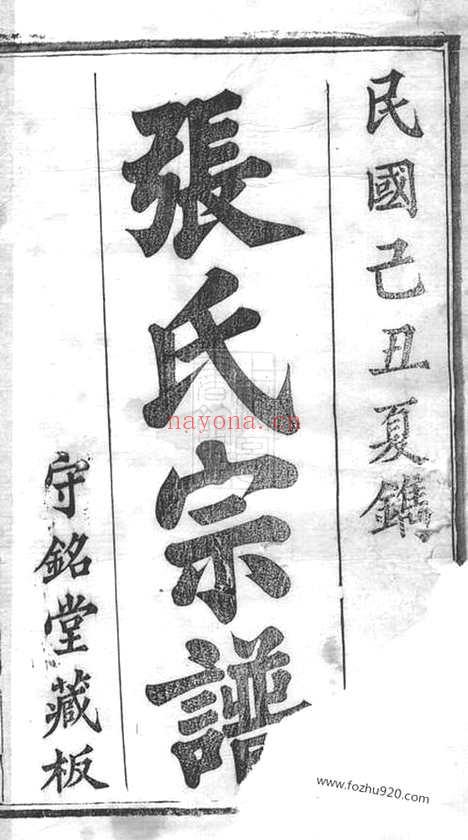 民國己丑夏鐫
張氏宗譜
守銘堂藏板
nayona.cn
www.fozhu920.com